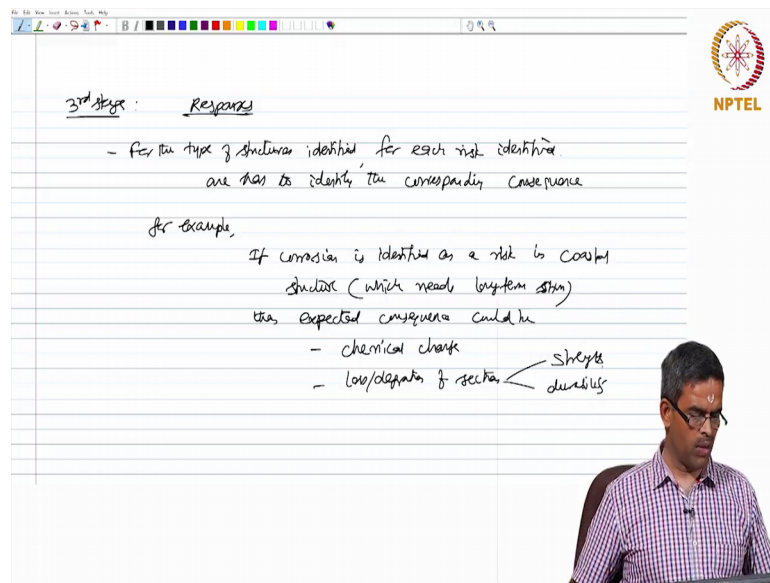 File Edit View Insert Actions Tools Help
B I
NPTEL
3rd stage : Response
- For the type of structures identified, for each risk identified
one has to identify the corresponding consequence
for example,
If corrosion is identified as a risk in coastal
structure (which need long term
then expected consequence could be
- chemical change
- loss/degradation of section
strength
durability